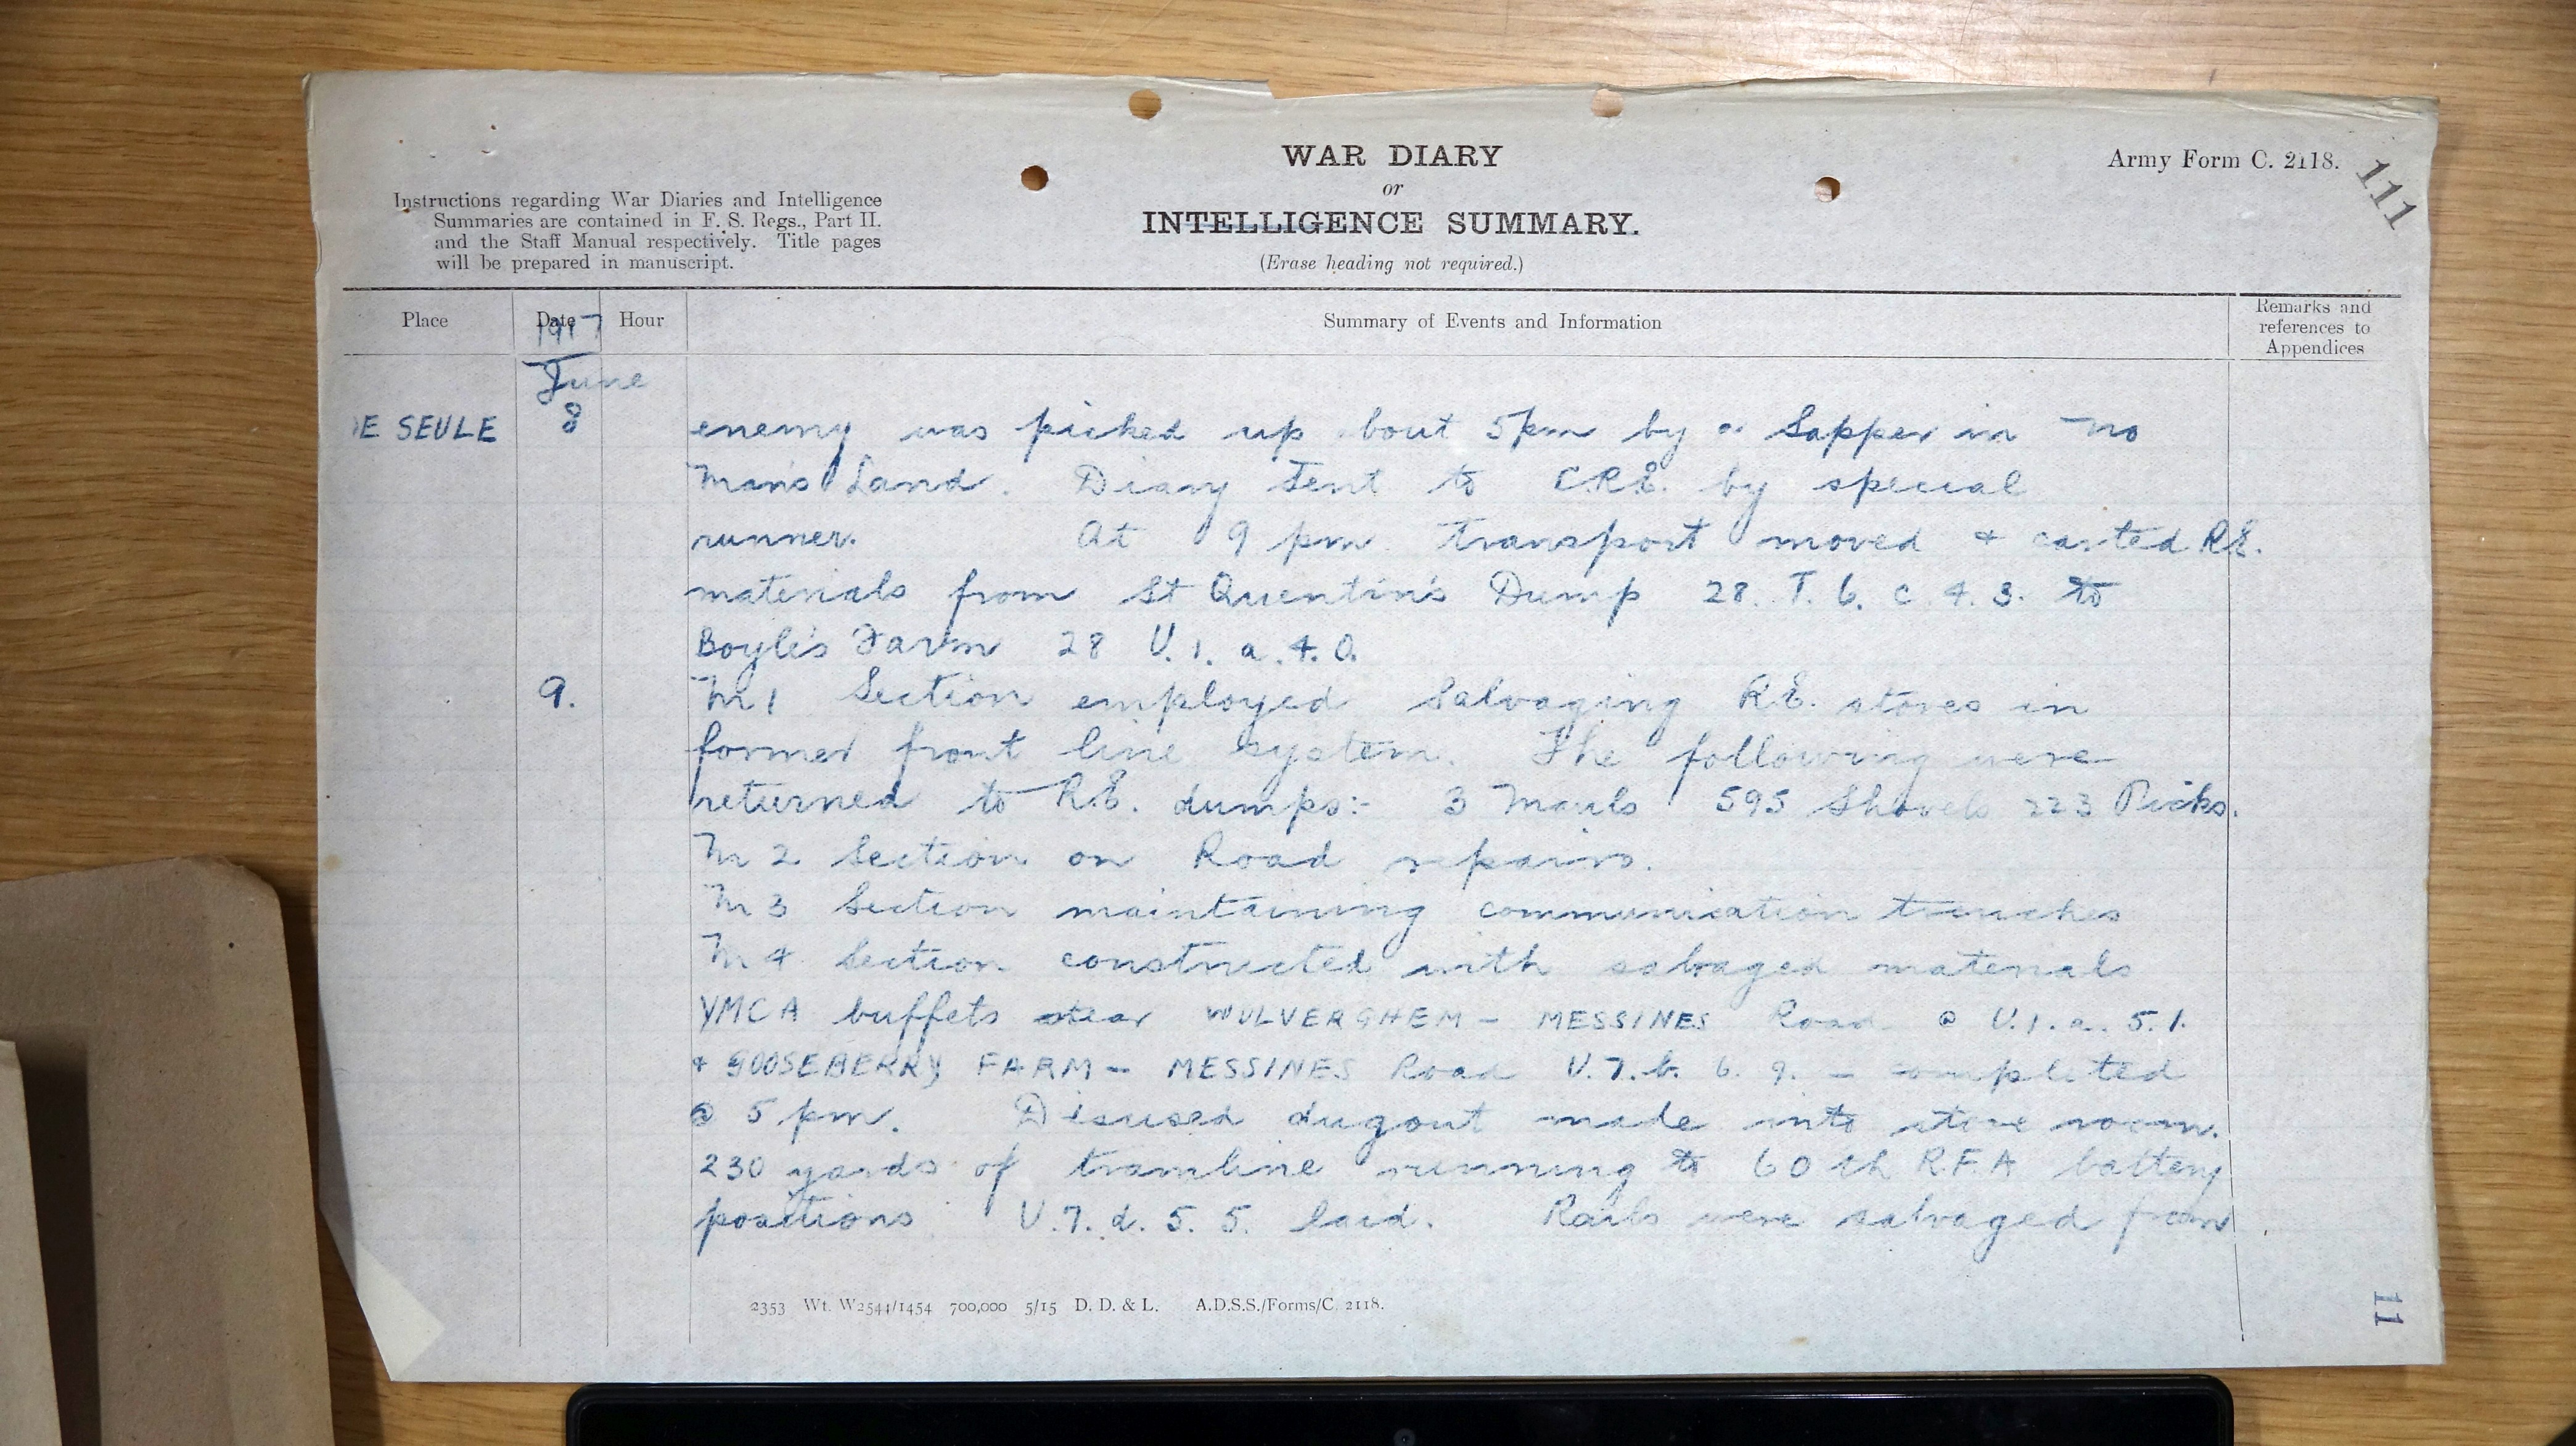 WAR DIARY
or
INTELLIGENCE SUMMARY.
(Erase heading not required.)
Army Form C. 2118.
111
Instructions regarding War Diaries and Intelligence
Summaries are contained in F. S. Regs., Part II.
and the Staff Manual respectively. Title pages
will be prepared in manuscript.
Place Date Hour Summary of Events and Information Remarks and references to Appendices
1917
June
E SEULE 8 enemy was picked up about 5pm by a Sapper in No
Man's Land. Diary sent to C.R.E. by special
runner. At 9 pm transport moved & carted R.E.
materials from St Quentin's Dump 28. T. 6. c. 4. 3. to
Boyle's Farm 28 U. 1. a. 4. 0.
9. Nr 1 Section employed Salvaging R.E. stores in
former front line system. The following were
returned to R.E. dumps:- 3 Mauls 595 Shovels 223 Picks.
Nr 2 Section on Road repairs.
Nr 3 Section maintaining communication trenches
Nr 4 Section constructed with salvaged materials
YMCA buffets near WULVERGHEM - MESSINES Road @ U.1.a. 5.1.
& GOOSEBERRY FARM - MESSINES Road U.7.b. 6. 9. - completed
@ 5 pm. Disused dugout made into store room.
230 yards of tramline running to 60th R.F.A battery
positions U.7.d. 5. 5. laid. Rails were salvaged from
2353 Wt. W2544/1454 700,000 5/15 D. D. & L. A.D.S.S./Forms/C. 2118.
11